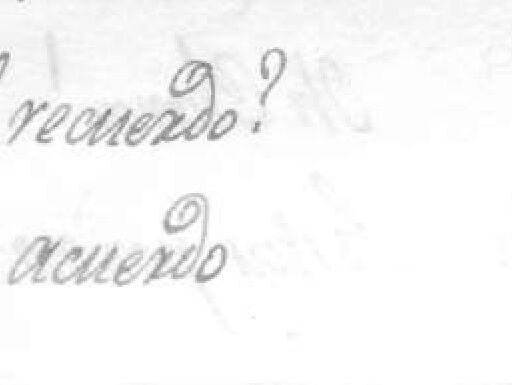 recuerdo?
acuerdo